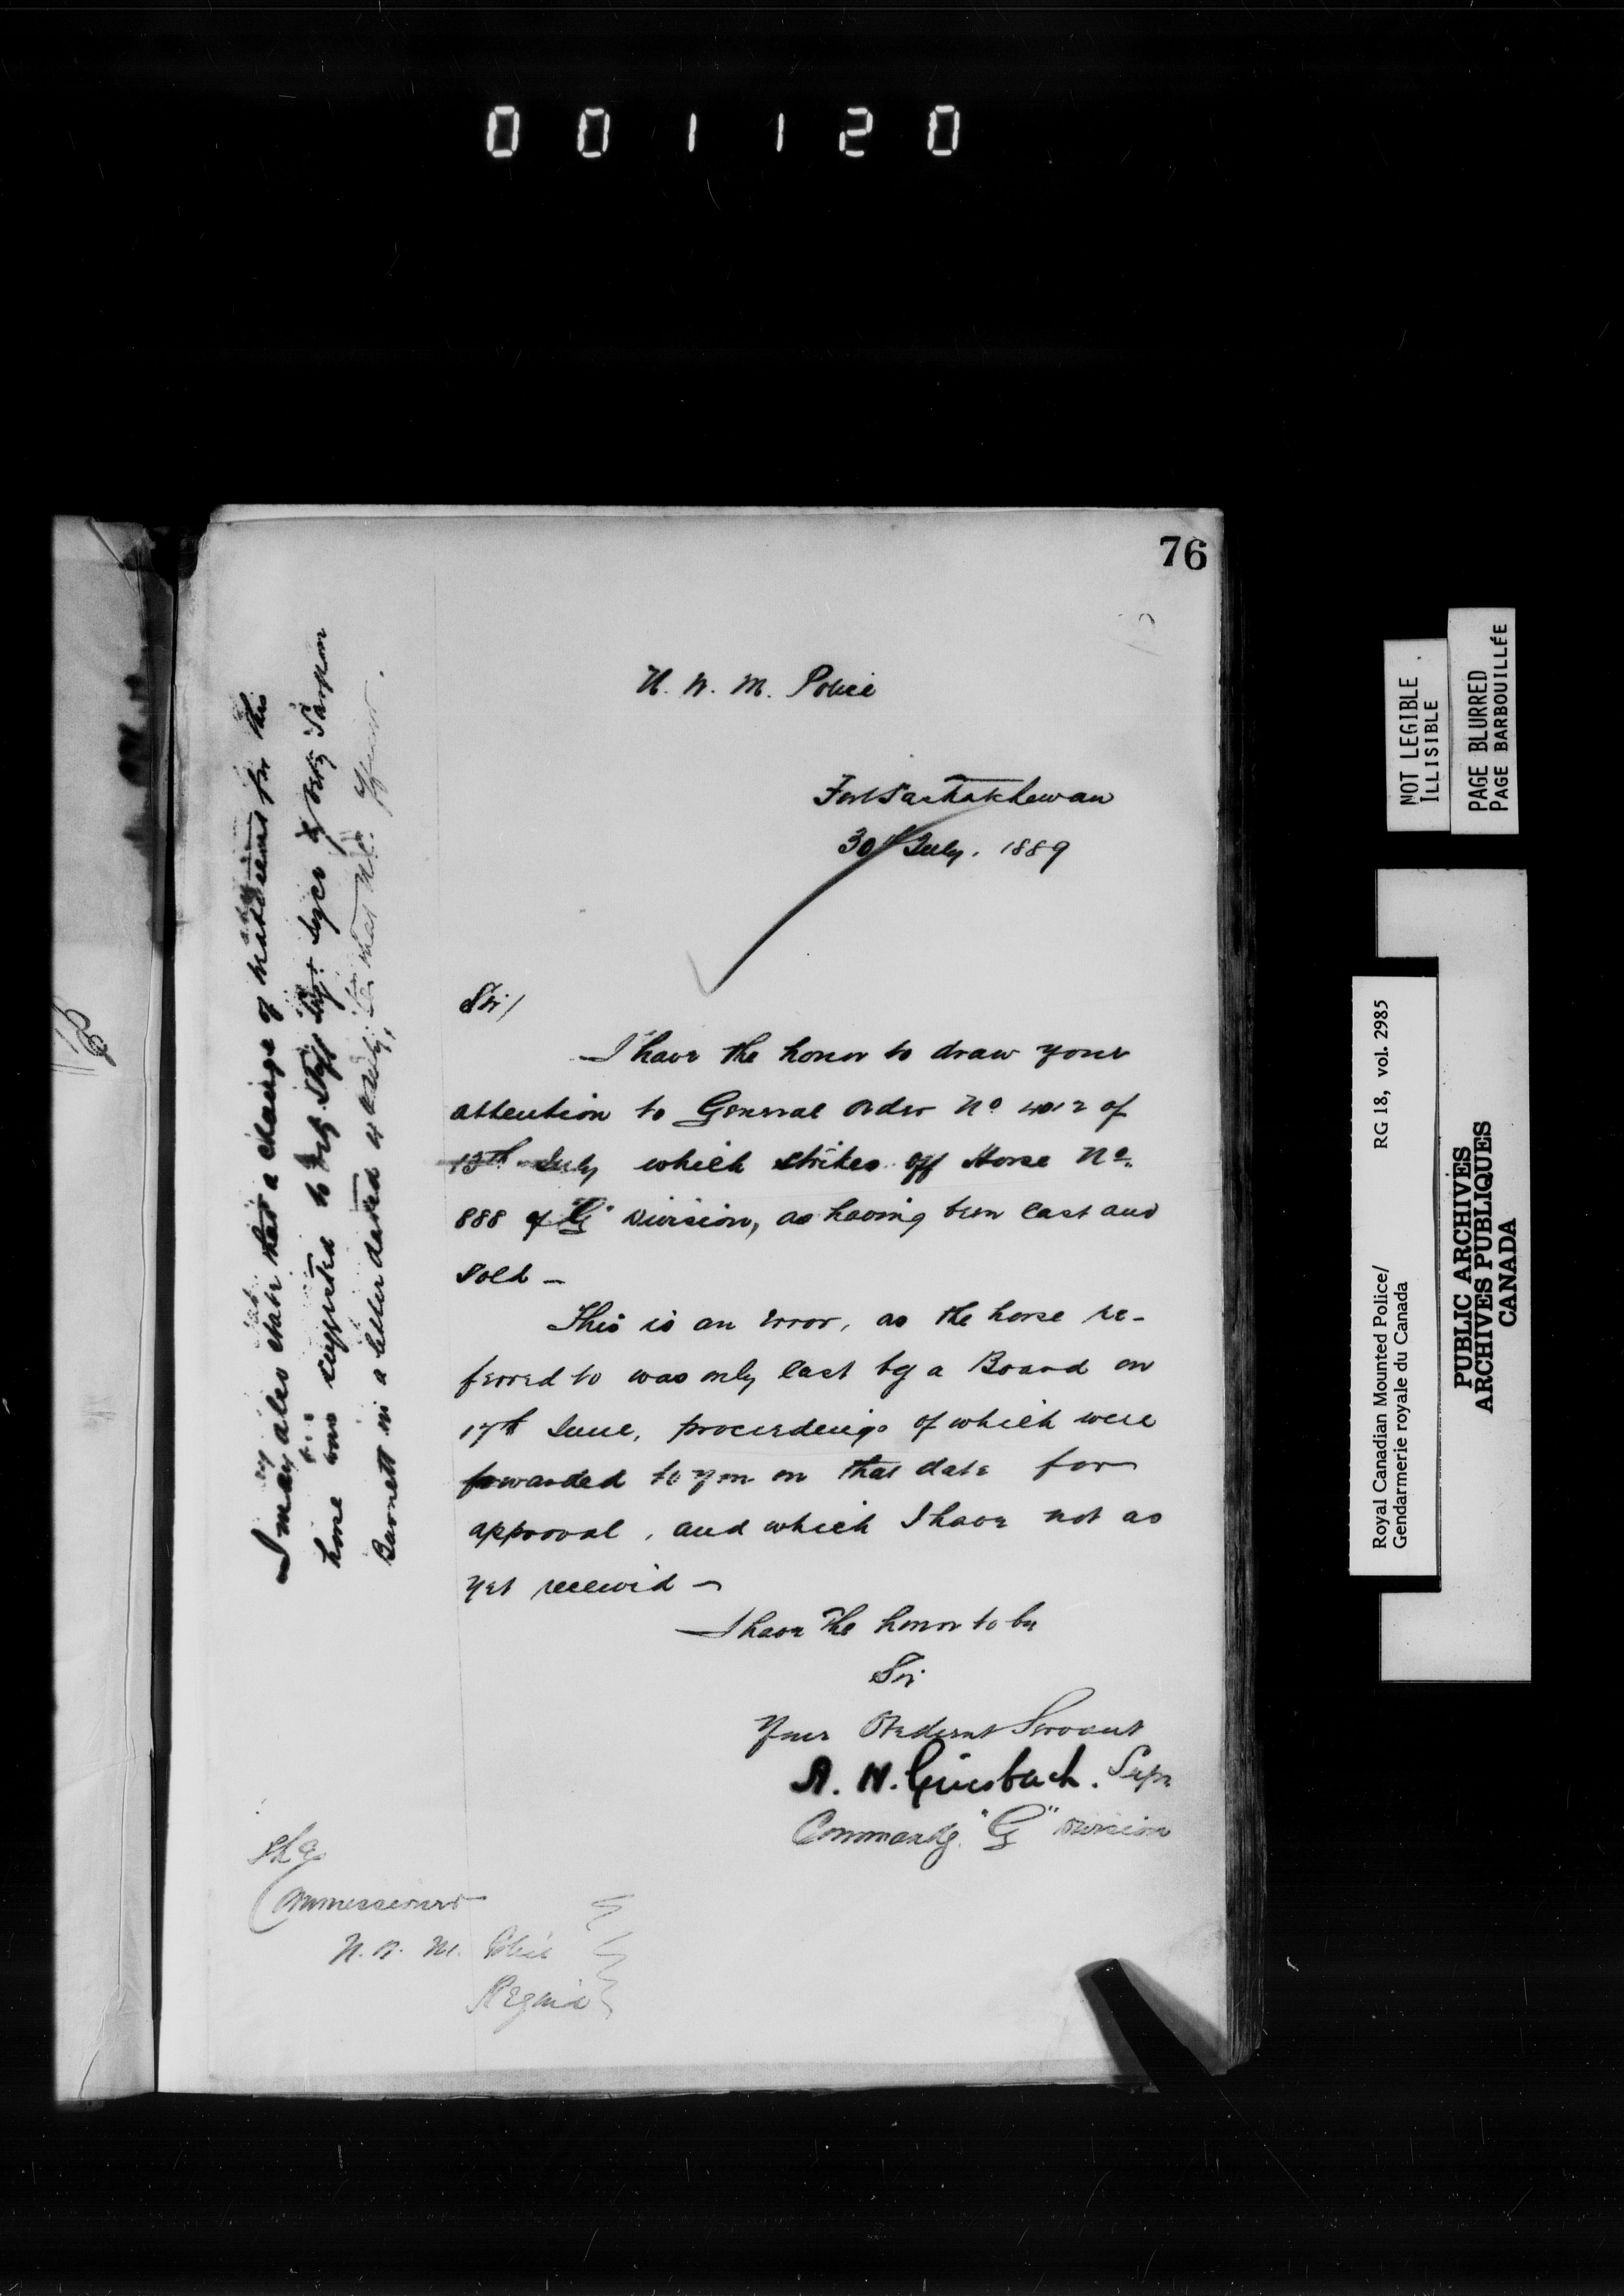 001120
76
N. W. M. Police
Fort Saskatchewan
30th July. 1889
Sir/
I have the honor to draw your
attention to General order No 4012 of
13th July which strikes off Horse No.
888 of "G" Division, as having been cast and
sold —
This is an error, as the horse re-
ferred to was only cast by a Board on
17th June, proceedings of which were
forwarded to you on that date for
approval, and which I have not as
yet received —
I have the honor to be
Sir
Your Obedient Servant
A. H. Griesbach. Supt
Commandg. "G" Division
The
Commissioner
N. W. M. Police
Regina
I may also state that a change of for this
horse was suggested to Staff Sergt
Barnett in a letter dated
NOT LEGIBLE
ILLISIBLE
PAGE BLURRED
PAGE BARBOUILLÉE
Royal Canadian Mounted Police/ RG 18, vol. 2985
Gendarmerie royale du Canada
PUBLIC ARCHIVES
ARCHIVES PUBLIQUES
CANADA